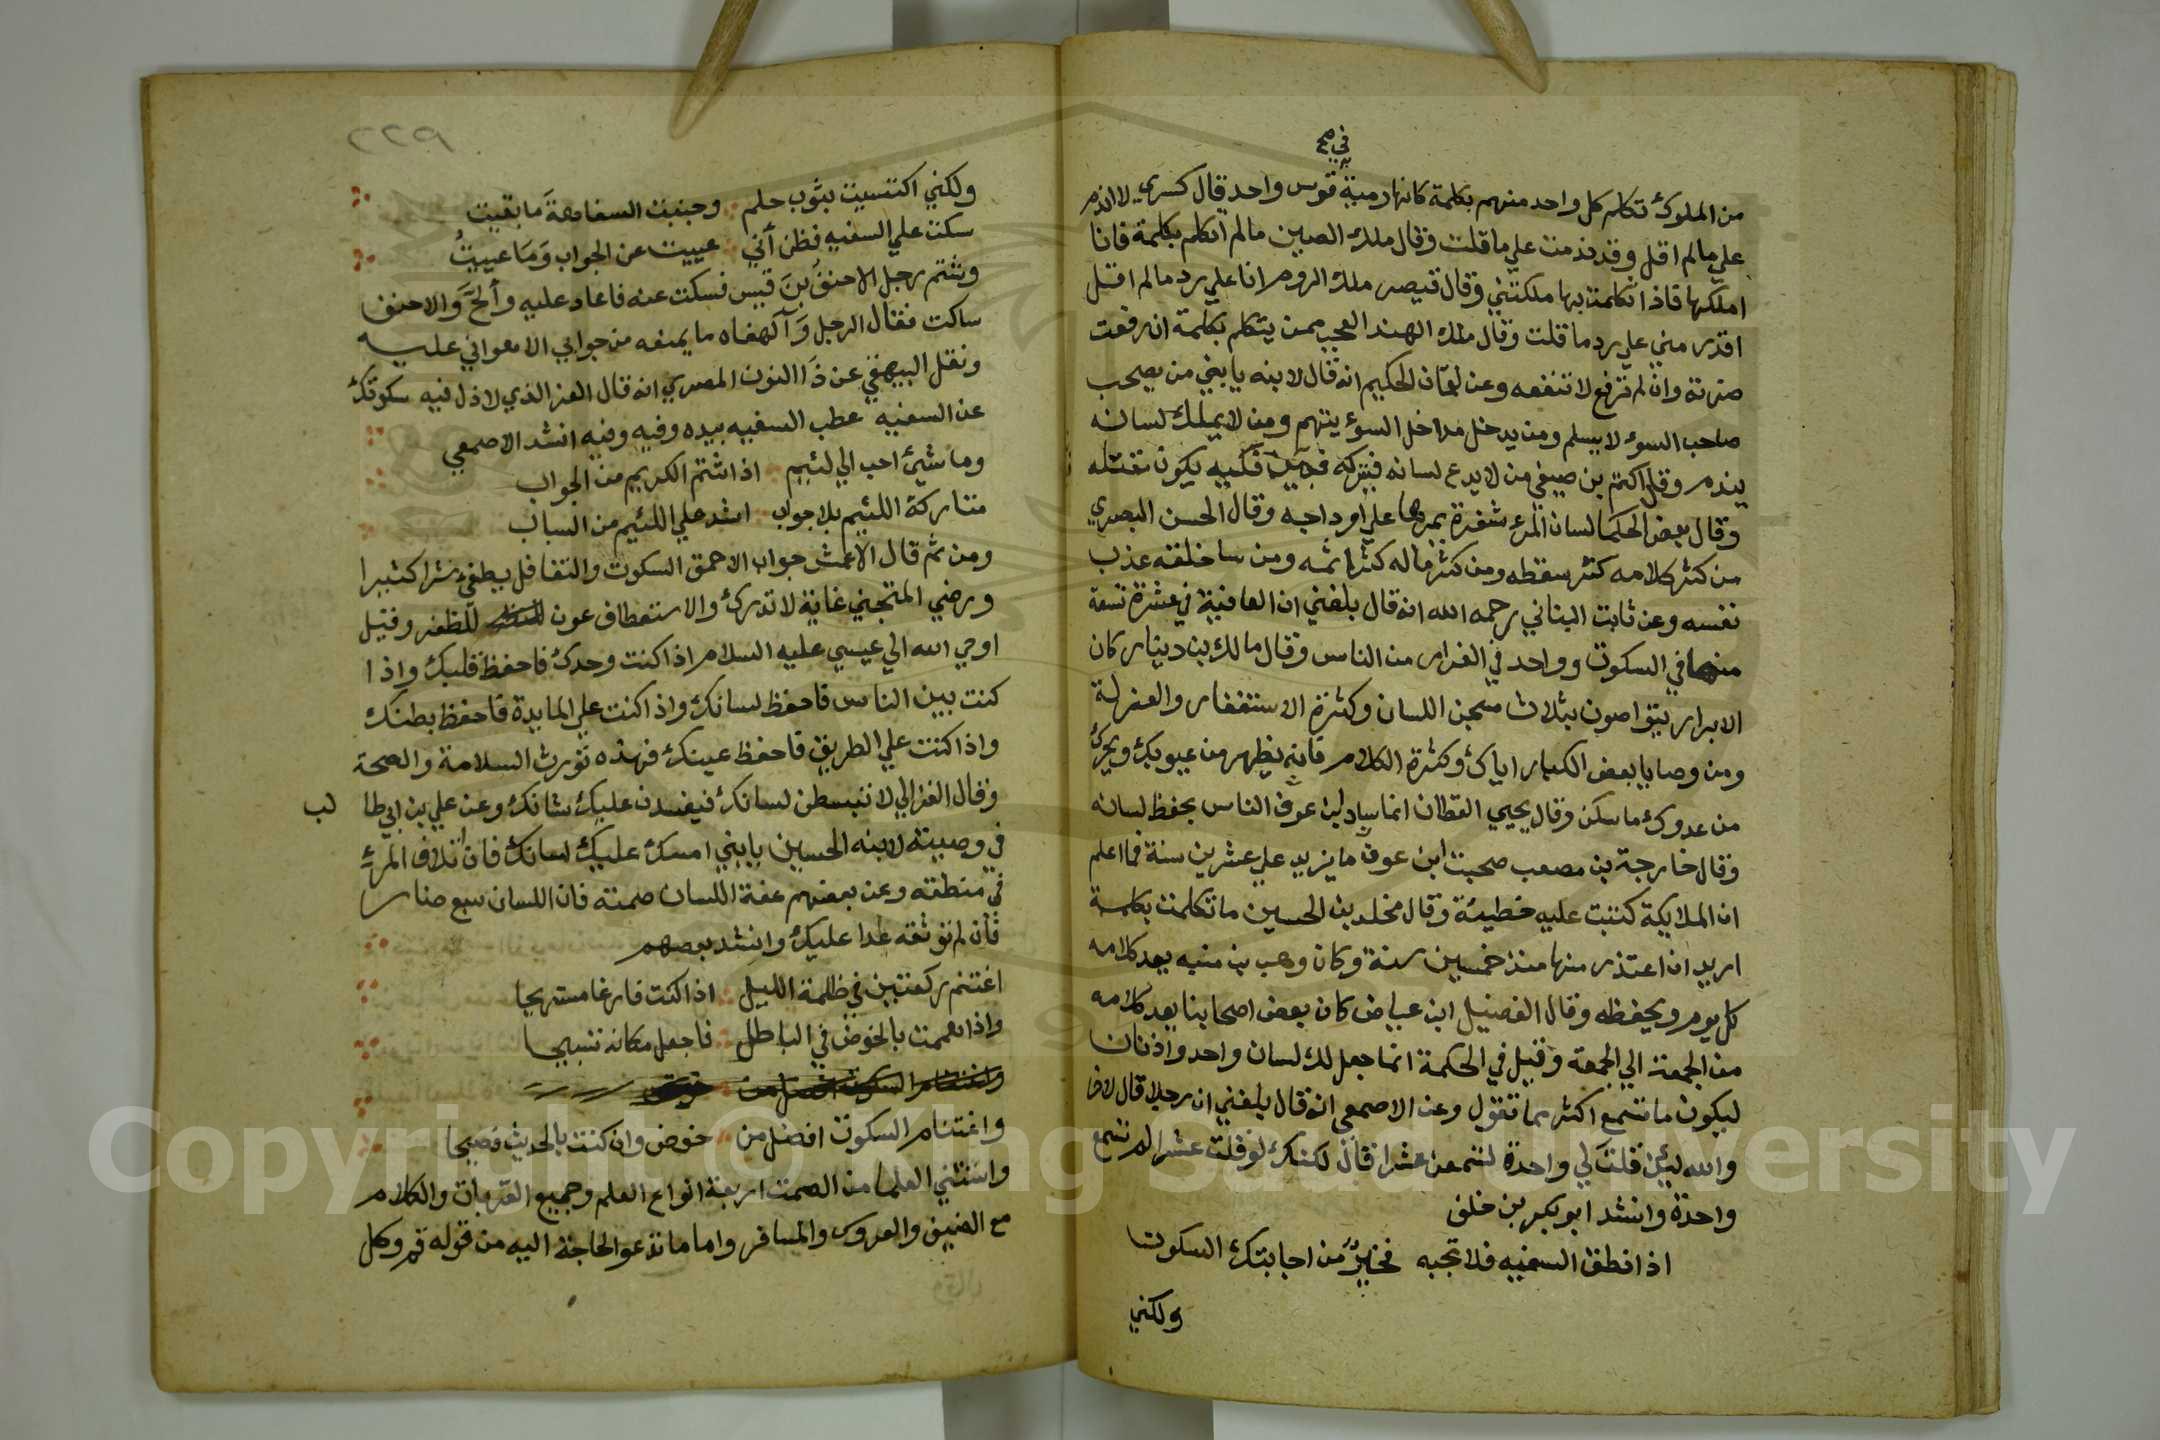 في صح
من الملوك تكلم كل واحد منهم بكلمة كانها رمية قوس واحد قال كسري لا اندم
علي مالم اقل وقد ندمت علي ما قلت وقال ملك الصين مالم اتكلم بكلمة فانا
املكها فاذا تكلمت بها ملكتني وقال قيصر ملك الروم انا علي رد مالم اقل
اقدر مني علي رد ما قلت وقال ملك الهند العجب ممن يتكلم بكلمة ان رفعت
ضرته وان لم ترفع لا تنفعه وعن لقمان الحكيم انه قال لابنه يا بني من يصحب
صاحب السوء لا يسلم ومن يدخل مداخل السوء يتهم ومن لا يملك لسانه
يندم وقال اكثم بن صيفي من لا يدع لسانه فيتركه فكيه يكون مقتله
وقال بعض الحكما لسان المرء شفرة يمرها علي اوداجه وقال الحسن البصري
من كثر كلامه كثر سقطه ومن كثر ماله كثر اثمه ومن سا خلقه عذب
نفسه وعن ثابت البناني رحمه الله انه قال بلغني ان العافية في عشرة تسعة
منها في السكوت وواحد في الفرار من الناس وقال مالك بن دينار كان
الابرار يتواصون بثلاث سجن اللسان وكثرة الاستغفار والعزلة
ومن وصايا بعض الكبار اياك وكثرة الكلام فانه يظهر من عيوبك ويحرك
من عدوك ما سكن وقال يحيي القطان انما ساد ابن عوف الناس بحفظ لسانه
وقال خارجة بن مصعب صحبت ابن عوف ما يزيد علي عشرين سنة فما اعلم
ان الملايكة كتبت عليه خطيئة وقال مخلد بن الحسين ما تكلمت بكلمة
اريد ان اعتذر منها منذ خمسين سنة وكان وهب بن منبه يعد كلامه
كل يوم ويحفظه وقال الفضيل ابن عياض كان بعض اصحابنا يعد كلامه
من الجمعة الي الجمعة وقيل في الحكمة انما جعل لك لسان واحد واذنان
ليكون ما تسمع اكثر مما تقول وعن الاصمعي انه قال بلغني ان رجلا قال لاخر
والله لين قلت لي واحدة لتسمعن عشرا قال لكنك لو قلت عشرا لم تسمع
واحدة وانشد ابو بكر بن خلف
اذا نطق السفيه فلا تجبه فخير من اجابتك السكوت
ولكني
٢٢٩
ولكني اكتسيت بثوب حلم وجنبت السفاهة ما بقيت
سكت علي السفيه فظن أني عييت عن الجواب وما عييت
وشتم رجل الاحنف بن قيس فسكت عنه فاعاد عليه وألح والاحنف
ساكت فقال الرجل وآلهفاه ما يمنعه من جوابي الا هواني عليه
ونقل البيهقي عن ذا النون المصري انه قال العز الذي لا ذل فيه سكوتك
عن السفيه عطب السفيه بيده وفيه وفيه انشد الاصمعي
وما شيئ احب الي لئيم اذا شتم الكريم من الجواب
متاركة اللئيم بلا جواب اشد علي اللئيم من السباب
ومن ثم قال الاعمش جواب الاحمق السكوت والتغافل يطفي شرا كثيرا
ورضي المتجني غاية لا تدرك والاستعطاف عون للظفر وقيل
اوحي الله الي عيسي عليه السلام اذا كنت وحدك فاحفظ قلبك واذا
كنت بين الناس فاحفظ لسانك واذا كنت علي المايدة فاحفظ بطنك
واذا كنت علي الطريق فاحفظ عينك فهذه تورث السلامة والصحة
وقال الغزالي لا تبسطن لسانك فيفسدن عليك شانك وعن علي بن ابي طا لب
في وصيته لابنه الحسين يا بني امسك عليك لسانك فان تلاف المرء
في منطقه وعن بعضهم عفة اللسان صمته فان اللسان سبع ضار
فأن لم توثقه عدا عليك وانشد بعضهم
اغتنم ركعتين في ظلمة الليل اذا كنت فارغا مستريحا
واذا هممت بالخوض في الباطل فاجعل مكانه تسبيحا
واغتنام السكوت افضل من خوض وان كنت بالحديث فصيحا
واستثني العلما من الصمت اربعة انواع العلم وجميع القربات والكلام
مع الضيف والعروس والمسافر واما ما تدعو الحاجة اليه من قوله قم وكل